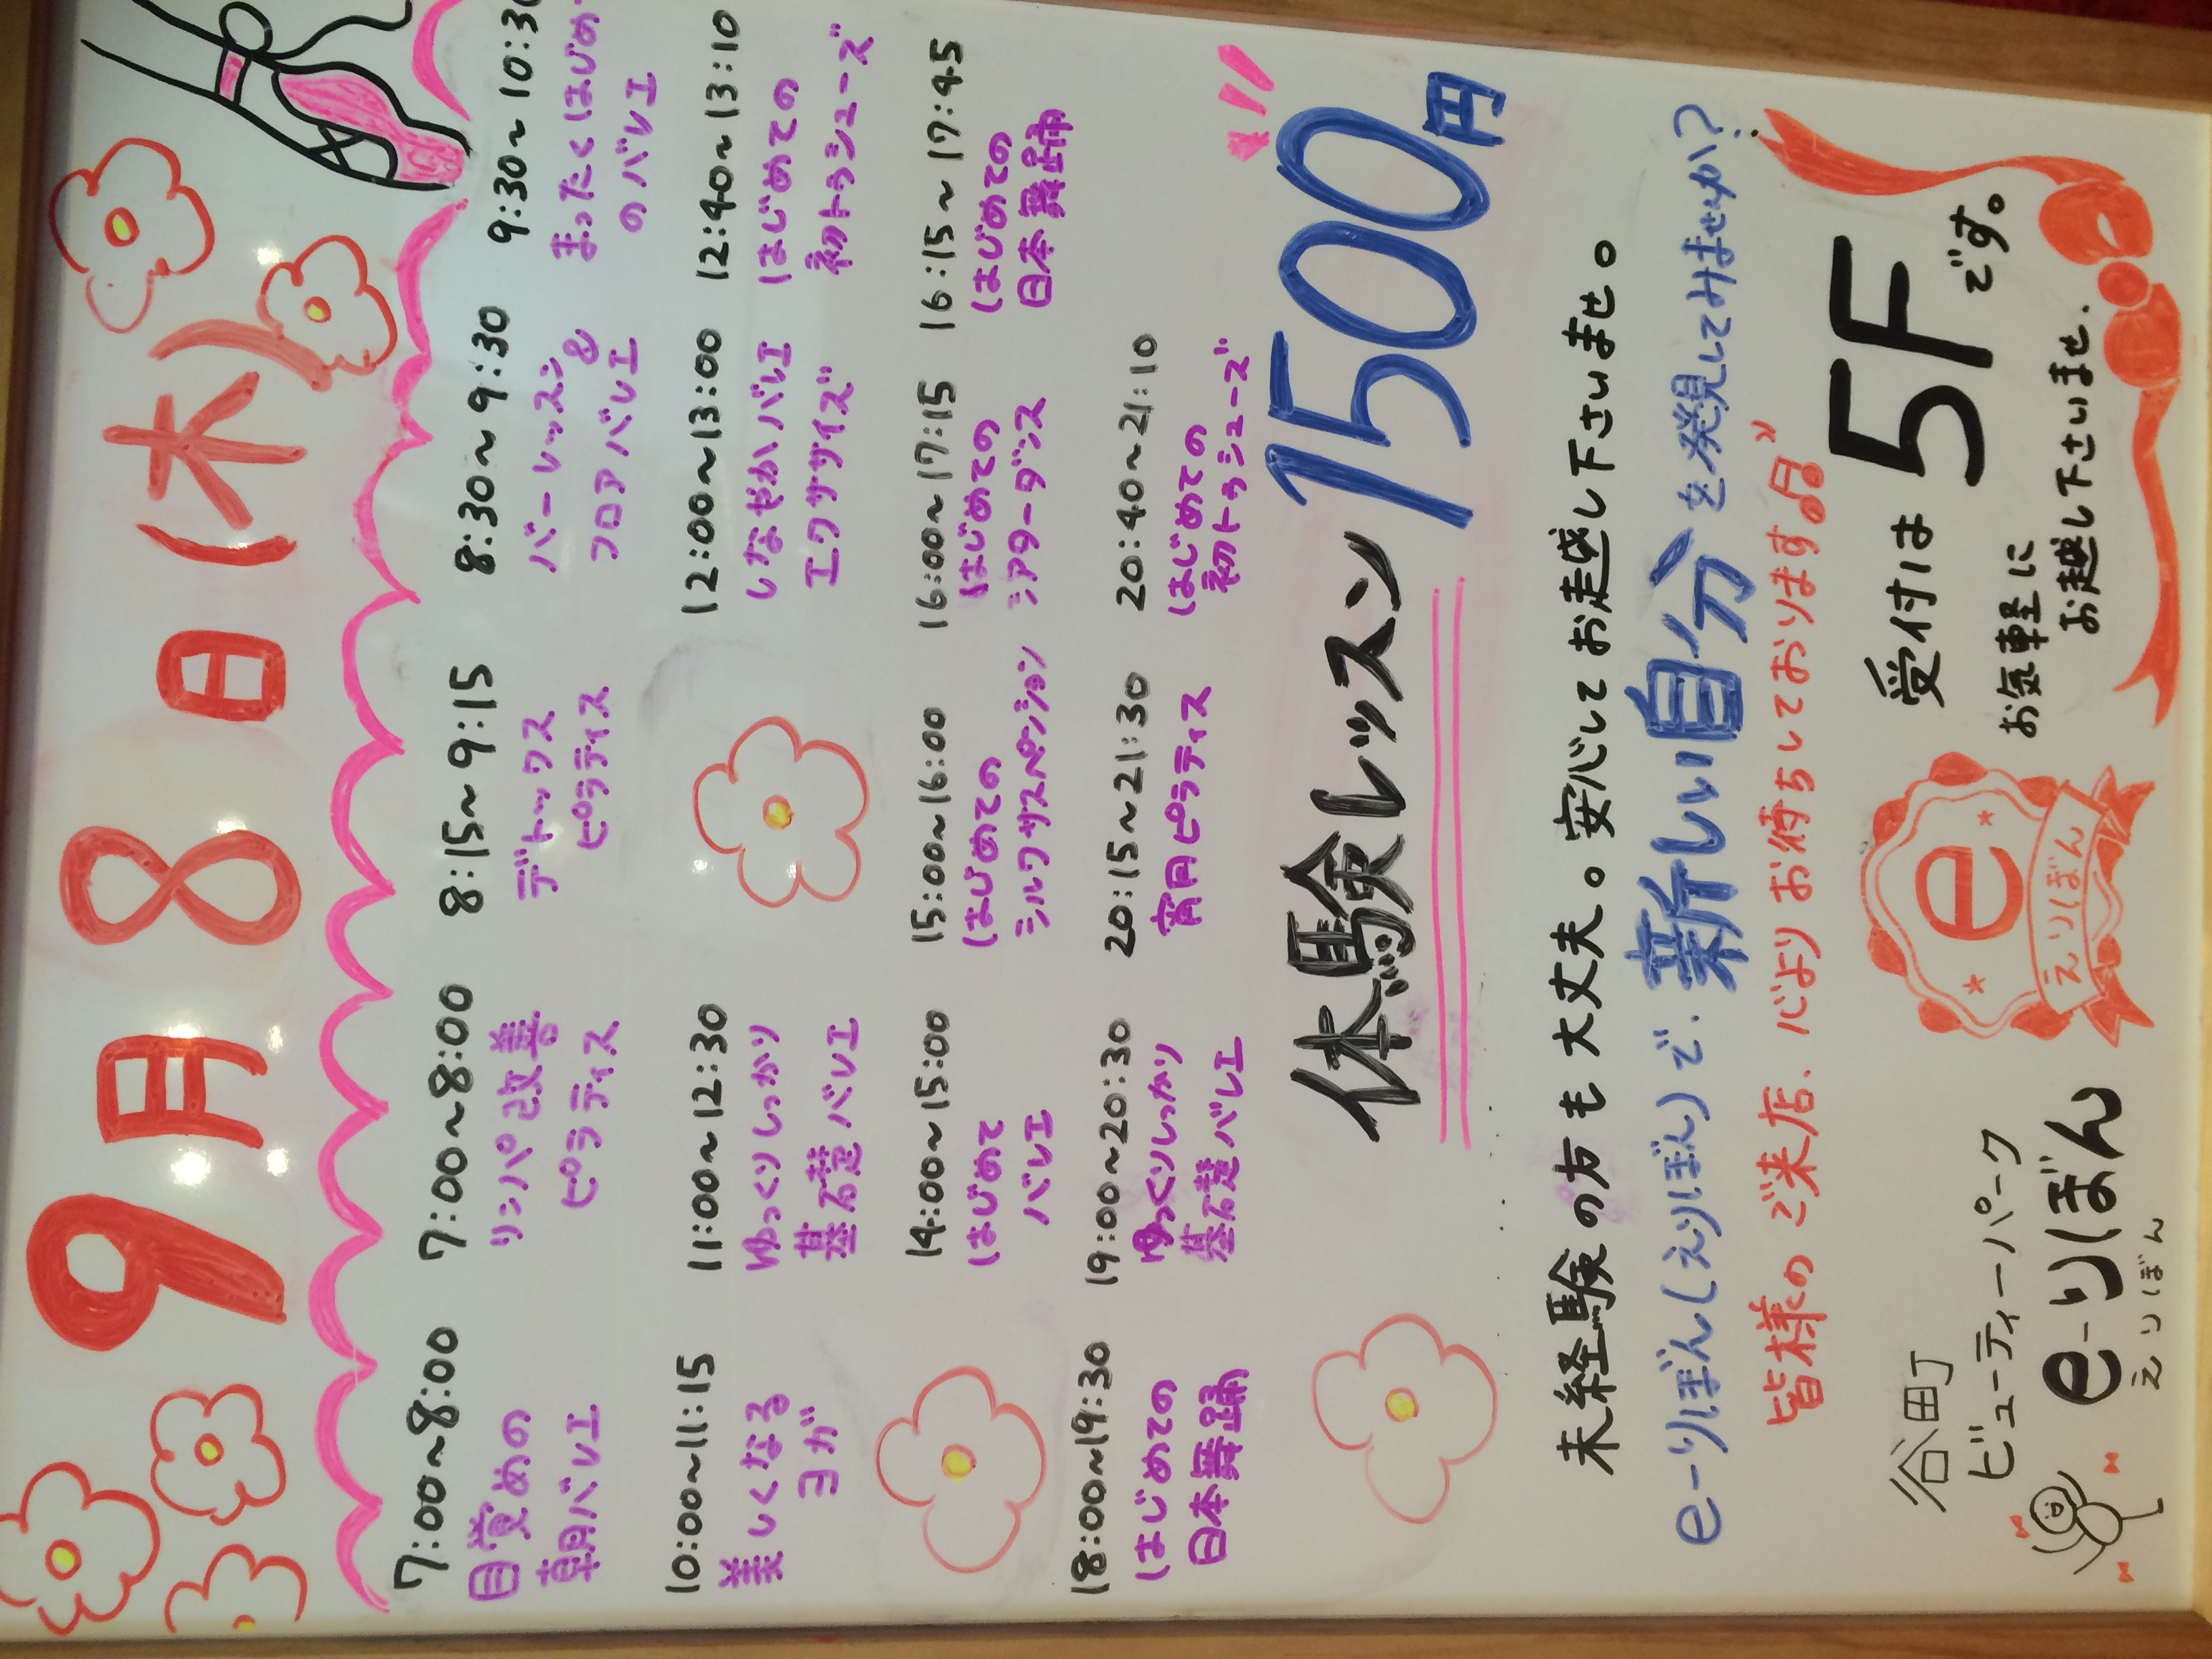 9月8日(木)
7:00~8:00
目覚めの
朝バレエ
7:00~8:00
リンパ改善
ピラティス
8:15~9:15
デトックス
ピラティス
8:30~9:30
バーレッスン&
フロアバレエ
9:30~10:30
まったくはじめて
のバレエ
10:00~11:15
美しくなる
ヨガ
11:00~12:30
ゆっくりしっかり
基礎バレエ
12:00~13:00
しなやかバレエ
エクササイズ
12:40~13:10
はじめての
初トゥシューズ
14:00~15:00
はじめて
バレエ
15:00~16:00
はじめての
シルクサスペンション
16:00~17:15
はじめての
シアターダンス
16:15~17:45
はじめての
日本舞踊
18:00~19:30
はじめての
日本舞踊
19:00~20:30
ゆっくりしっかり
基礎バレエ
20:15~21:30
宵月ピラティス
20:40~21:10
はじめての
初トゥシューズ
体験レッスン1500円
未経験の方も大丈夫。安心してお越し下さいませ。
e-りぼん(えりぼん)で、新しい自分を発見してみませんか?
皆様のご来店、心よりお待ちしております♫"
谷町
ビューティーパーク
e-りぼん
えりぼん
e
えりぼん
受付は5Fです。
お気軽に
お越し下さいませ.